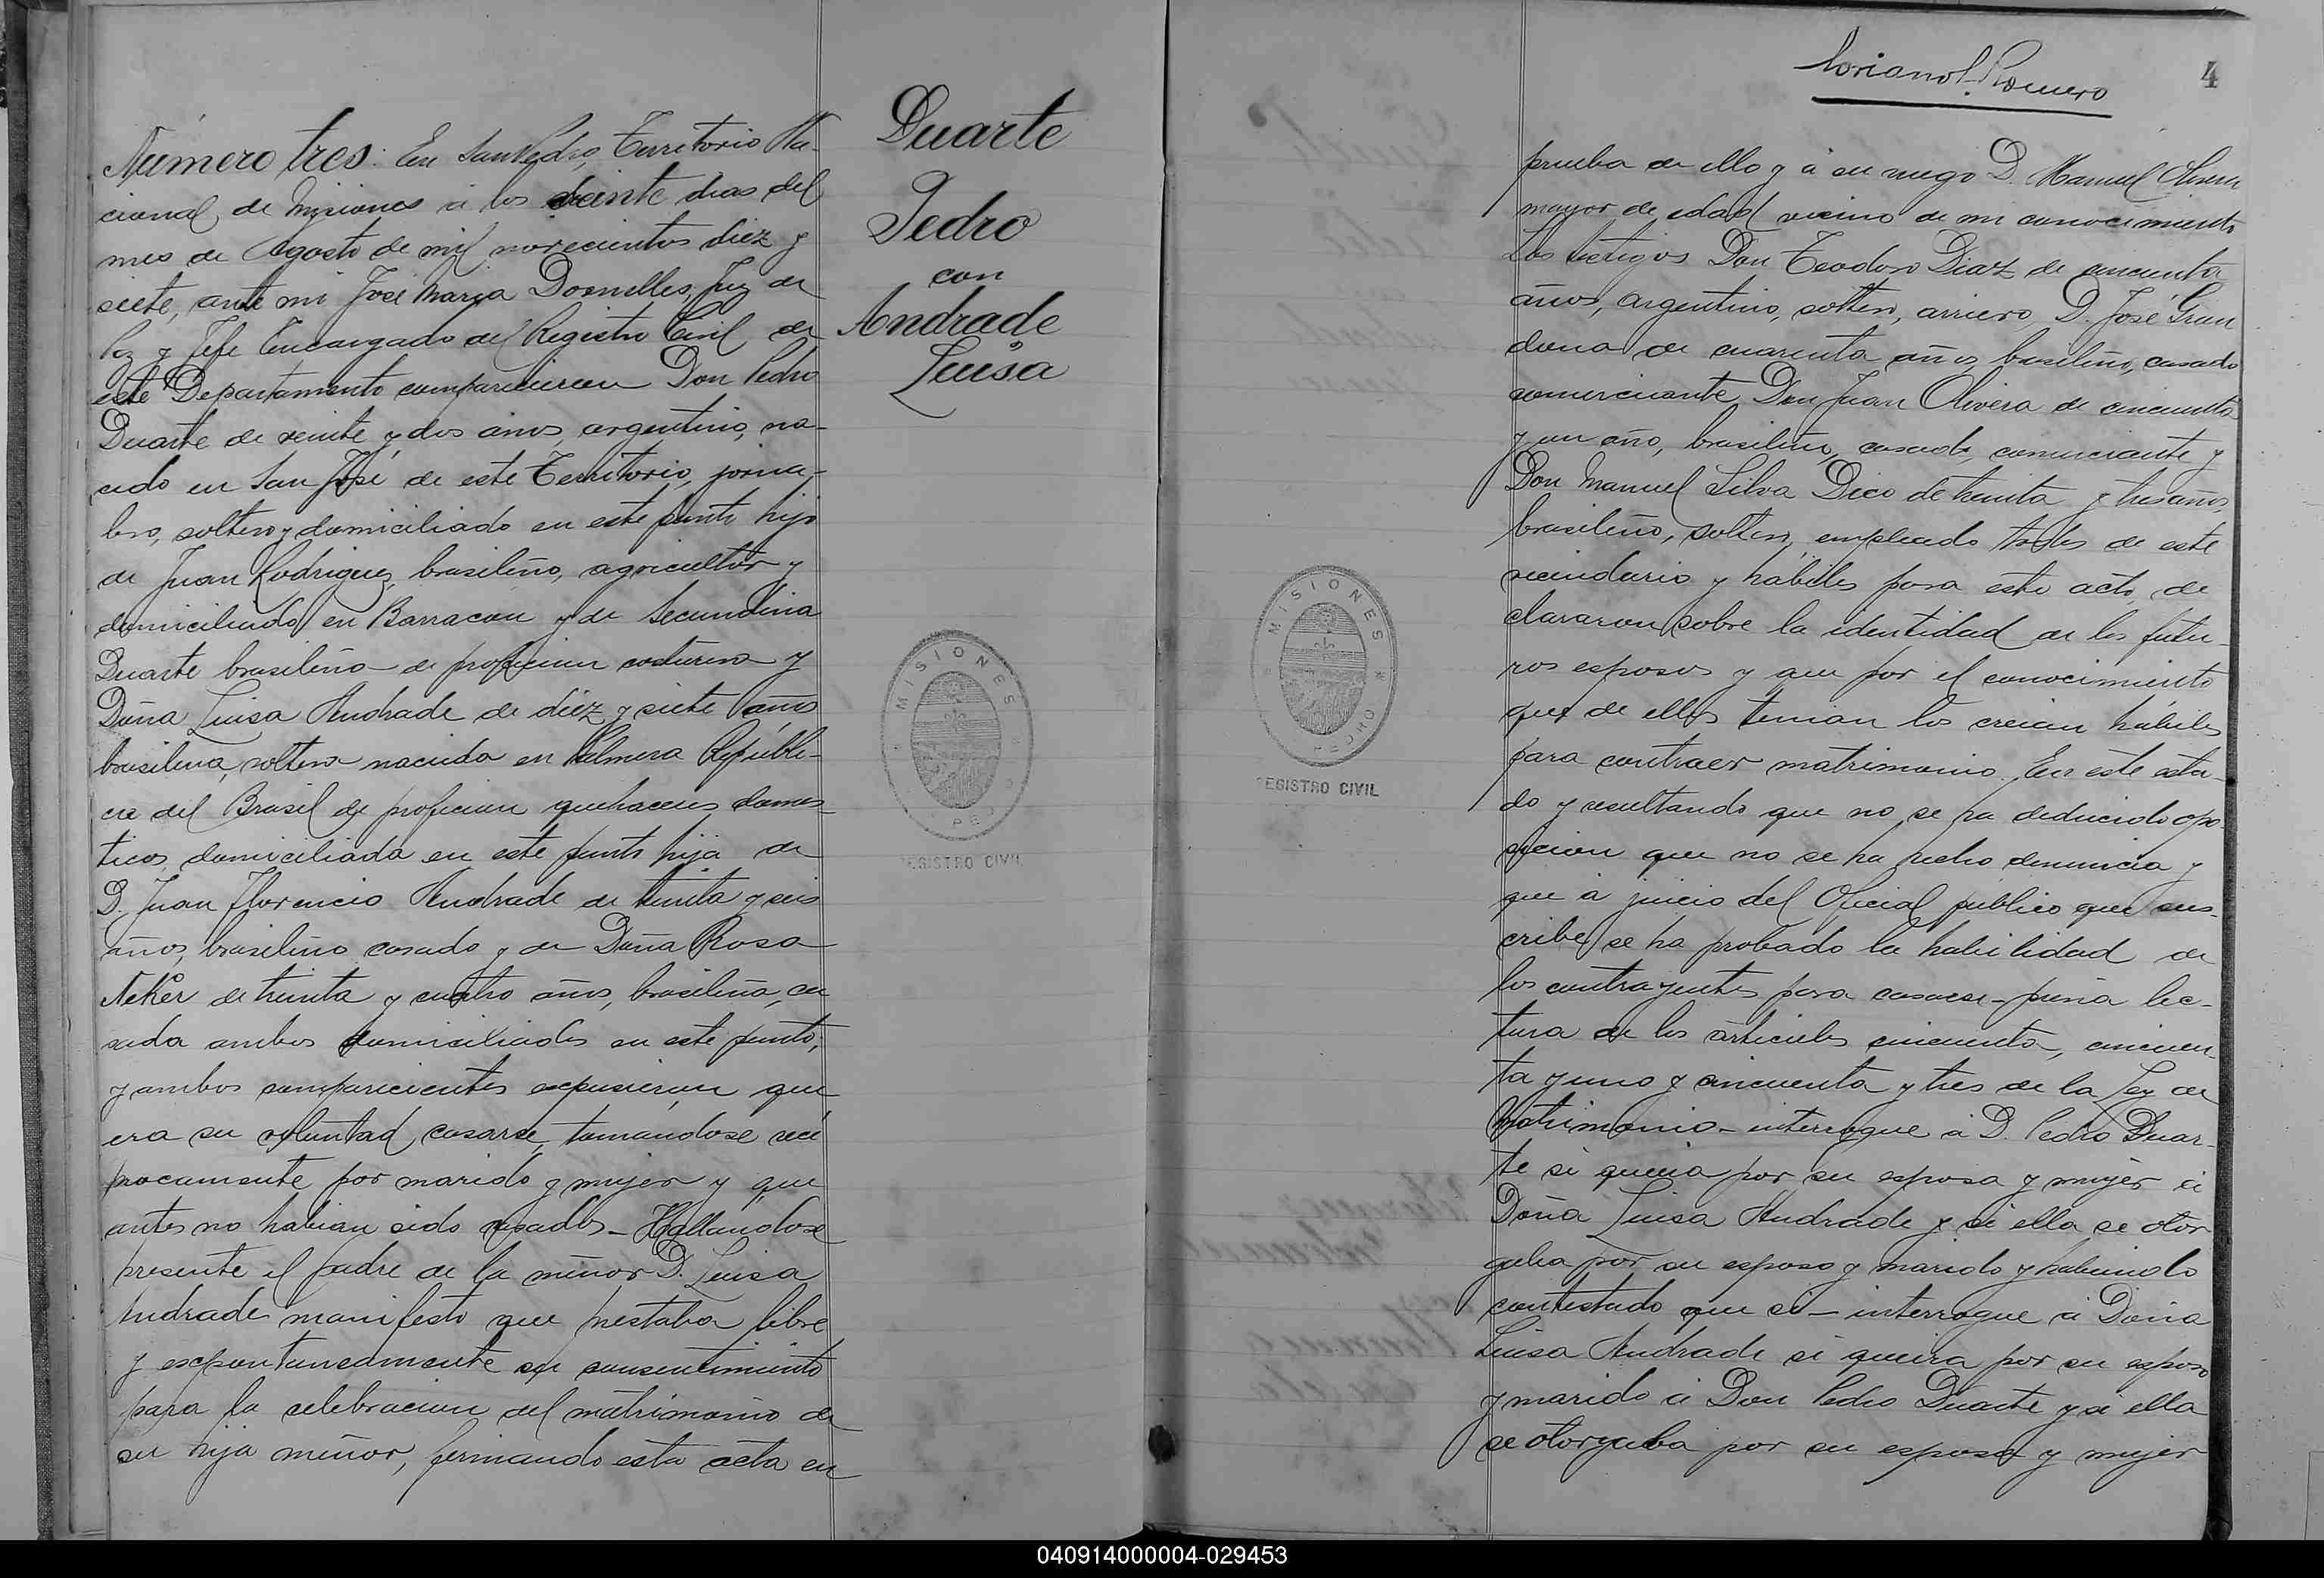 Número tres: En San Pedro, Territorio Na-
cional de Misiones á los veinte dias del
mes de Agosto de mil novecientos diez y
siete, ante mi José Maria Dornelles, Juez de
Paz y Jefe Encargado del Registro Civil de
este Departamento comparecieron Don Pedro
Duarte de veinte y dos años, argentino, na-
cido en San José de este Territorio, jorna-
lero, soltero y domiciliado en este punto hijo
de Juan Rodriguez, brasileño, agricultor y
domiciliado en Barracon y de Secundina
Duarte brasileña de profecion costurera y
Doña Luisa Andrade de diez y siete años
brasilena, soltera nacida en Palmera Repúbli-
ca del Brasil de profecion quehaceres domes
ticos, domiciliada en este punto hija de
D. Juan Florencio Andrade de treinta y seis
años, brasileño casado y de Doña Rosa
Neker de treinta y cuatro años, brasileña, ca
sada ambos domiciliados en este punto,
y ambos comparecientes expusieron que
era su voluntad casarse, tomandose reci
procamente por marido y mujer y que
antes no habian sido casados - Hallandose
presente el padre de la menor D. Luisa
Andrade manifesto que prestaba libre
y espontaneamente su consentimiento
para la celebracion del matrimonio de
su hija menor, firmando esta acta en
Duarte
Pedro
con
Andrade
Luisa
MISIONES
REGISTRO CIVIL
Romero
4
prueba de ello y á su ruego D. Manuel Olivera
mayor de edad vecino de mi conocimiento
Los testigos Don Teodoro Diaz de cincuenta
años, argentino, soltero, arriero, D. José Gran
dona de cuarenta años, brasileño, casado
comerciante, Don Juan Olivera de cincuenta
y un año, brasileño, casado, comerciante y
Don Manuel Silva Dico de treinta y tres años,
brasileño, soltero, empleado todos de este
vecindario y habiles para este acto, de
clararon sobre la identidad de los futu-
ros esposos y que por el conocimiento
que de ellos tenian los creian hábiles
para contraer matrimonio. En este esta-
do y resultando que no se ha deducido opo-
sicion que no se ha hecho denuncia y
que á juicio del Oficial público que sus-
cribe se ha probado la habilidad de
los contrayentes para casarse - prévia lec-
tura de los artículos cincuenta, cincuen-
ta y uno y cincuenta y tres de la Ley de
Matrimonio - interrogue á D. Pedro Duar-
te si queria por su esposa y mujer á
Doña Luisa Andrade y si ella se otor
gaba por su esposo y marido y habiendo
contestado que si - interrogue á Doña
Luisa Andrade si queria por su esposo
y marido á Don Pedro Duarte y si ella
se otorgaba por su esposa y mujer
MISIONES
REGISTRO CIVIL
040914000004-029453